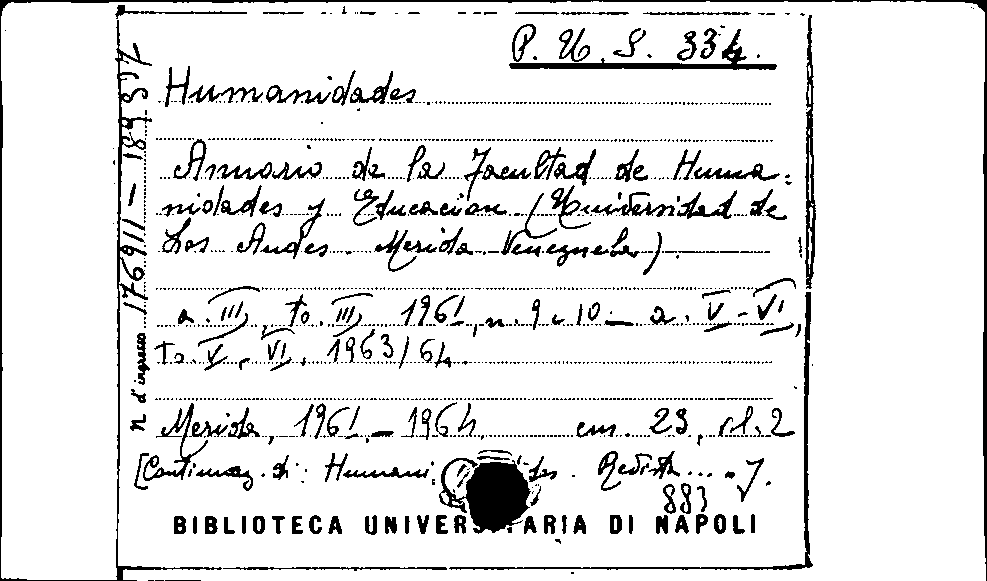 P. U. S. 334.
Humanidades.
Anuario de la Facultad de Huma=
nidades y Educacion (Universidad de
Los Andes. Merida. Venezuela).
a. III, to. III, 1961, n. 9 e 10 - a. V-VI,
to. V - VI, 1963/64.
Merida, 1961 - 1964. cm. 23, cl. 2
[Continuaz. di: Humani des. Revista... "].
883
BIBLIOTECA UNIVERSITARIA DI NAPOLI
N d'ingresso 176911 - 189597